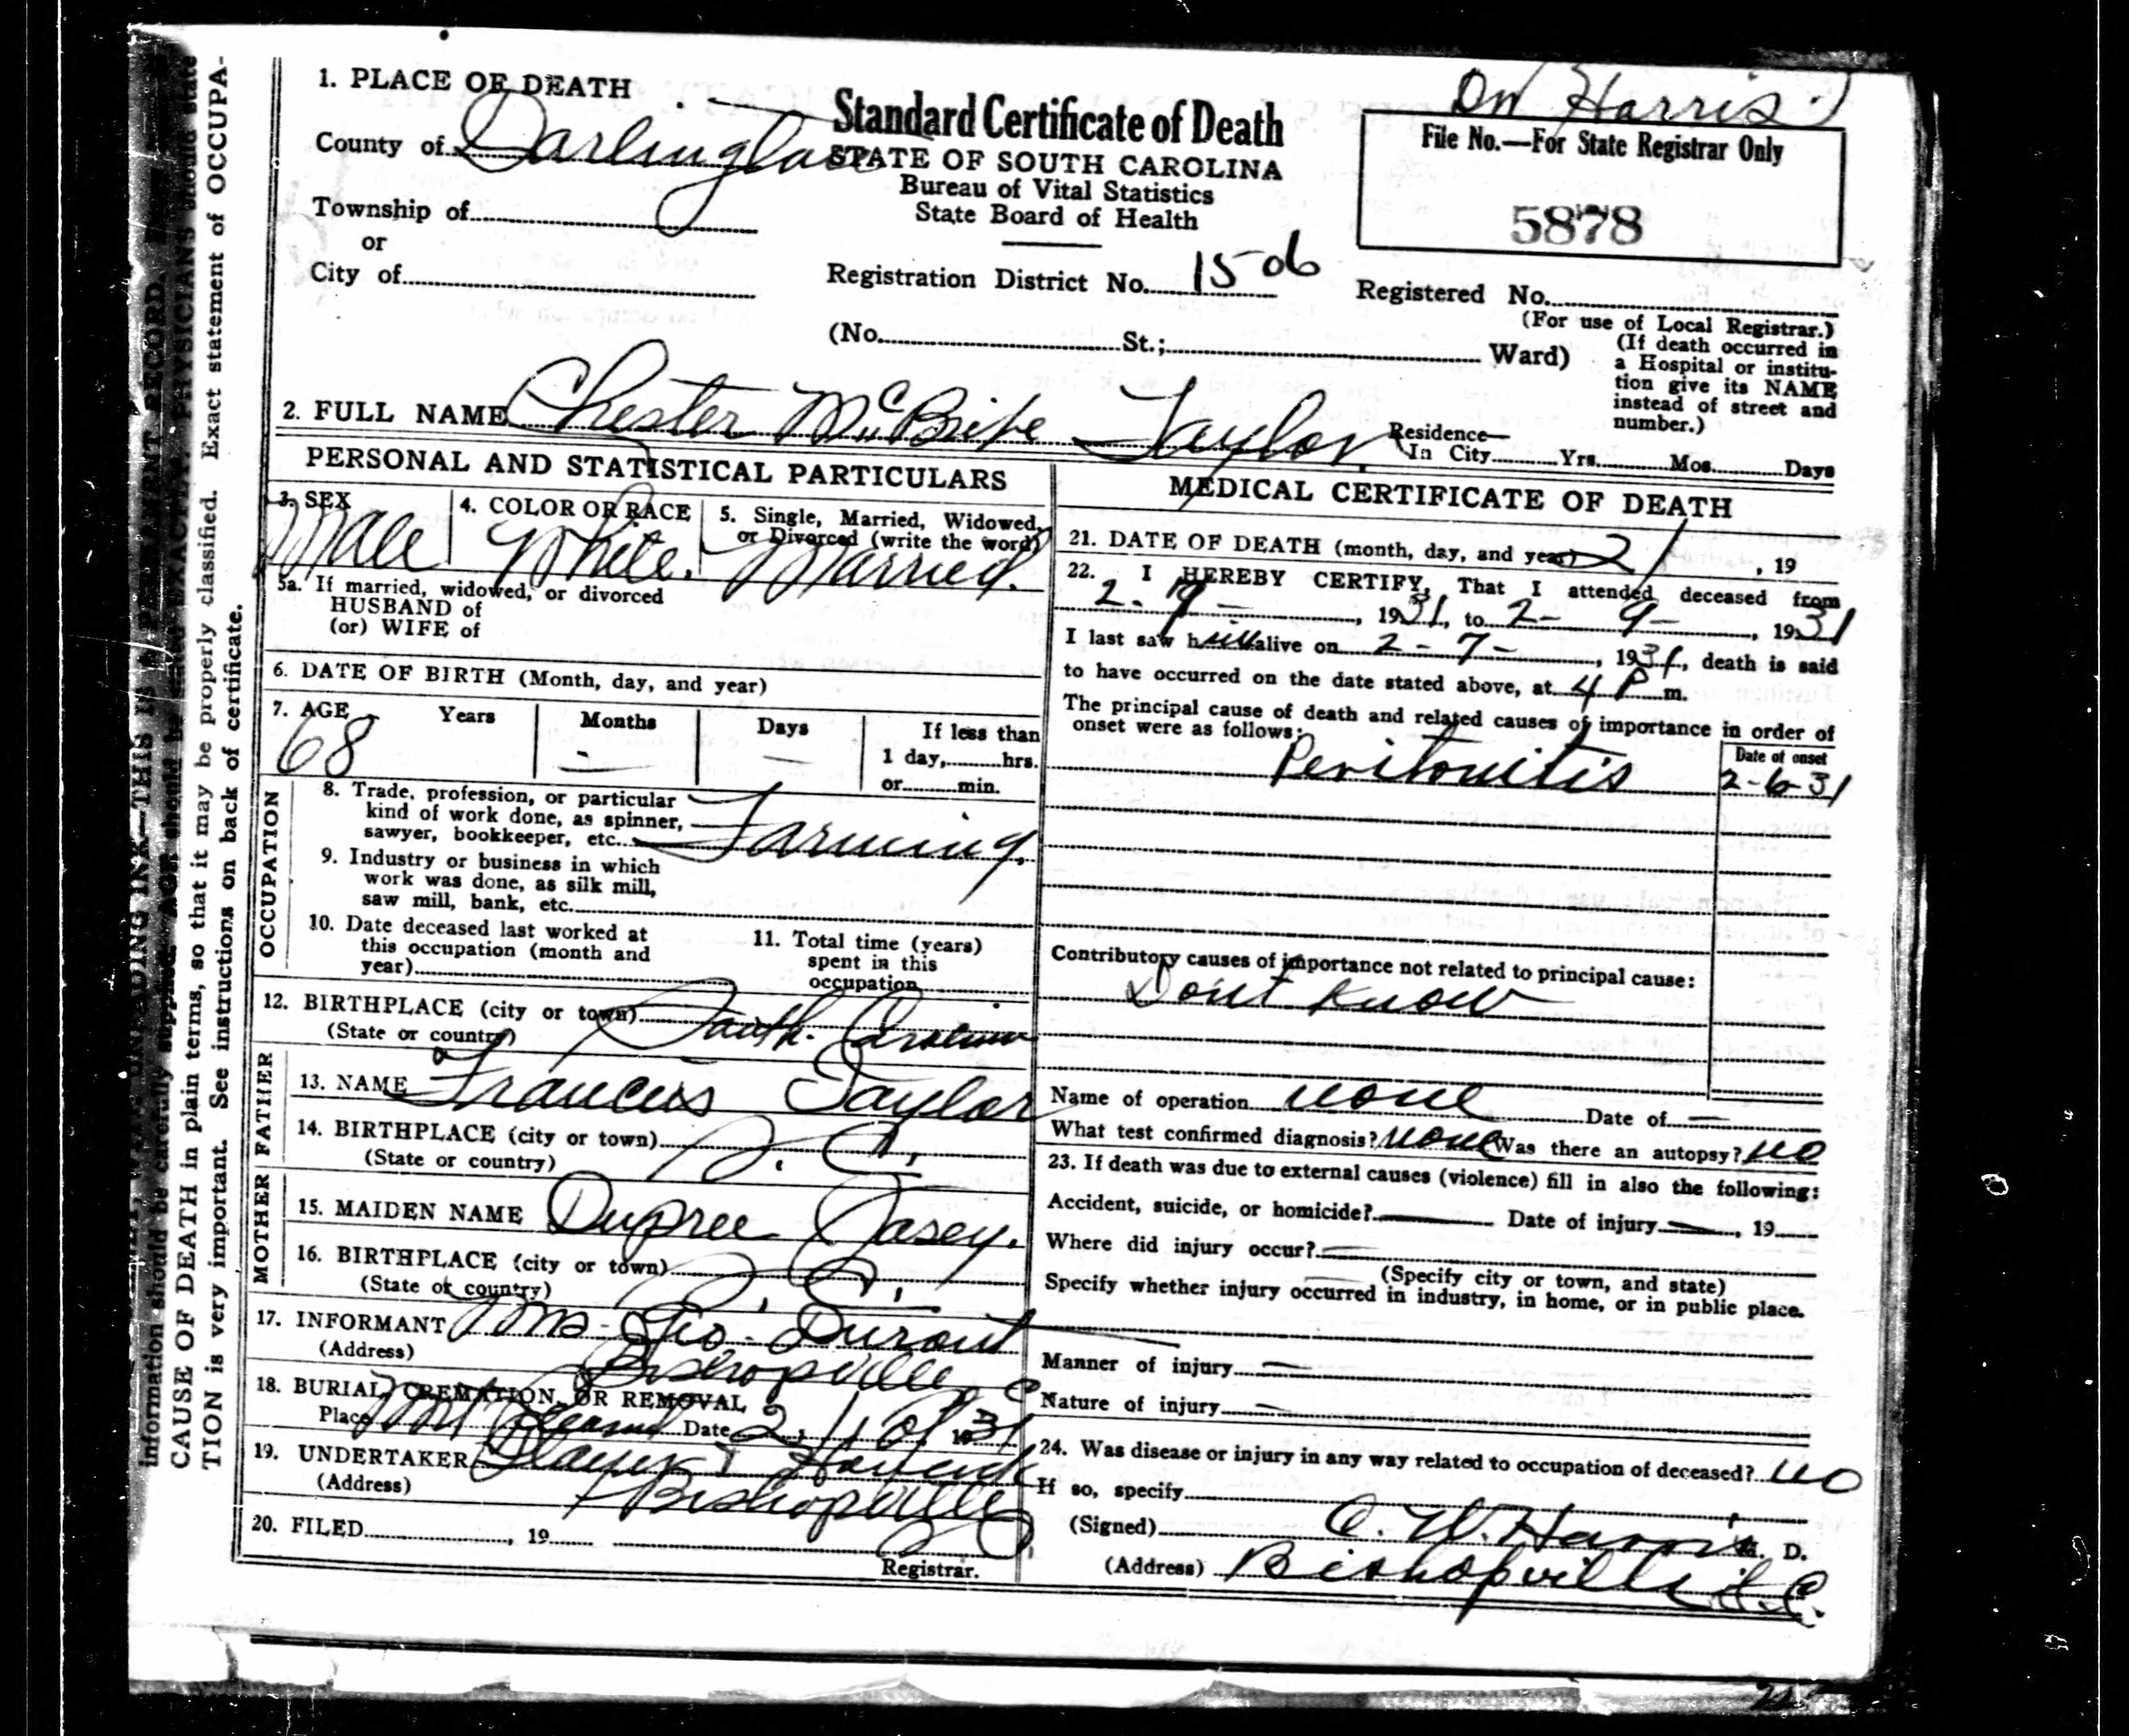 Dr Harris
1. PLACE OF DEATH
County of Darlington
Township of
or
City of
Standard Certificate of Death
STATE OF SOUTH CAROLINA
Bureau of Vital Statistics
State Board of Health
File No.—For State Registrar Only
5878
Registration District No. 1506
Registered No.
(For use of Local Registrar.)
(No. St.; Ward)
(If death occurred in
a Hospital or institu-
tion give its NAME
instead of street and
number.)
2. FULL NAME Chester McBride Taylor
Residence—
In City Yrs. Mos. Days
PERSONAL AND STATISTICAL PARTICULARS
3. SEX
Male
4. COLOR OR RACE
White.
5. Single, Married, Widowed,
or Divorced (write the word)
Married.
5a. If married, widowed, or divorced
HUSBAND of
(or) WIFE of
6. DATE OF BIRTH (Month, day, and year)
7. AGE Years Months Days If less than
68 — — 1 day, hrs.
or min.
OCCUPATION
8. Trade, profession, or particular
kind of work done, as spinner,
sawyer, bookkeeper, etc. Farming.
9. Industry or business in which
work was done, as silk mill,
saw mill, bank, etc.
10. Date deceased last worked at
this occupation (month and
year)
11. Total time (years)
spent in this
occupation
12. BIRTHPLACE (city or town)
(State or country) South. Carolina
FATHER
13. NAME Francis Taylor
14. BIRTHPLACE (city or town) S. C.
(State or country)
MOTHER
15. MAIDEN NAME Dupree Casey.
16. BIRTHPLACE (city or town) S. C.
(State or country)
17. INFORMANT Mrs - Geo. Durant
(Address) Bishopville
18. BURIAL, CREMATION, OR REMOVAL
Place Mt Date 2/10/ 1931
19. UNDERTAKER
(Address) Bishopville
20. FILED , 19
Registrar.
MEDICAL CERTIFICATE OF DEATH
21. DATE OF DEATH (month, day, and year) 2/ , 19
22. I HEREBY CERTIFY, That I attended deceased from
2-9- , 1931, to 2-9- , 1931
I last saw him alive on 2-7- , 1931, death is said
to have occurred on the date stated above, at 4 P m.
The principal cause of death and related causes of importance in order of
onset were as follows:
Date of onset
Peritonitis 2-6-31
Contributory causes of importance not related to principal cause:
Dont Know
Name of operation none Date of —
What test confirmed diagnosis? none Was there an autopsy? no
23. If death was due to external causes (violence) fill in also the following:
Accident, suicide, or homicide? — Date of injury — , 19
Where did injury occur? —
(Specify city or town, and state)
Specify whether injury occurred in industry, in home, or in public place.
Manner of injury —
Nature of injury —
24. Was disease or injury in any way related to occupation of deceased? no
If so, specify
(Signed) O. W. Harris M. D.
(Address) Bishopville S.C.
information should be carefully supplied. AGE should be stated EXACTLY. PHYSICIANS should state
CAUSE OF DEATH in plain terms, so that it may be properly classified. Exact statement of OCCUPA-
TION is very important. See instructions on back of certificate.